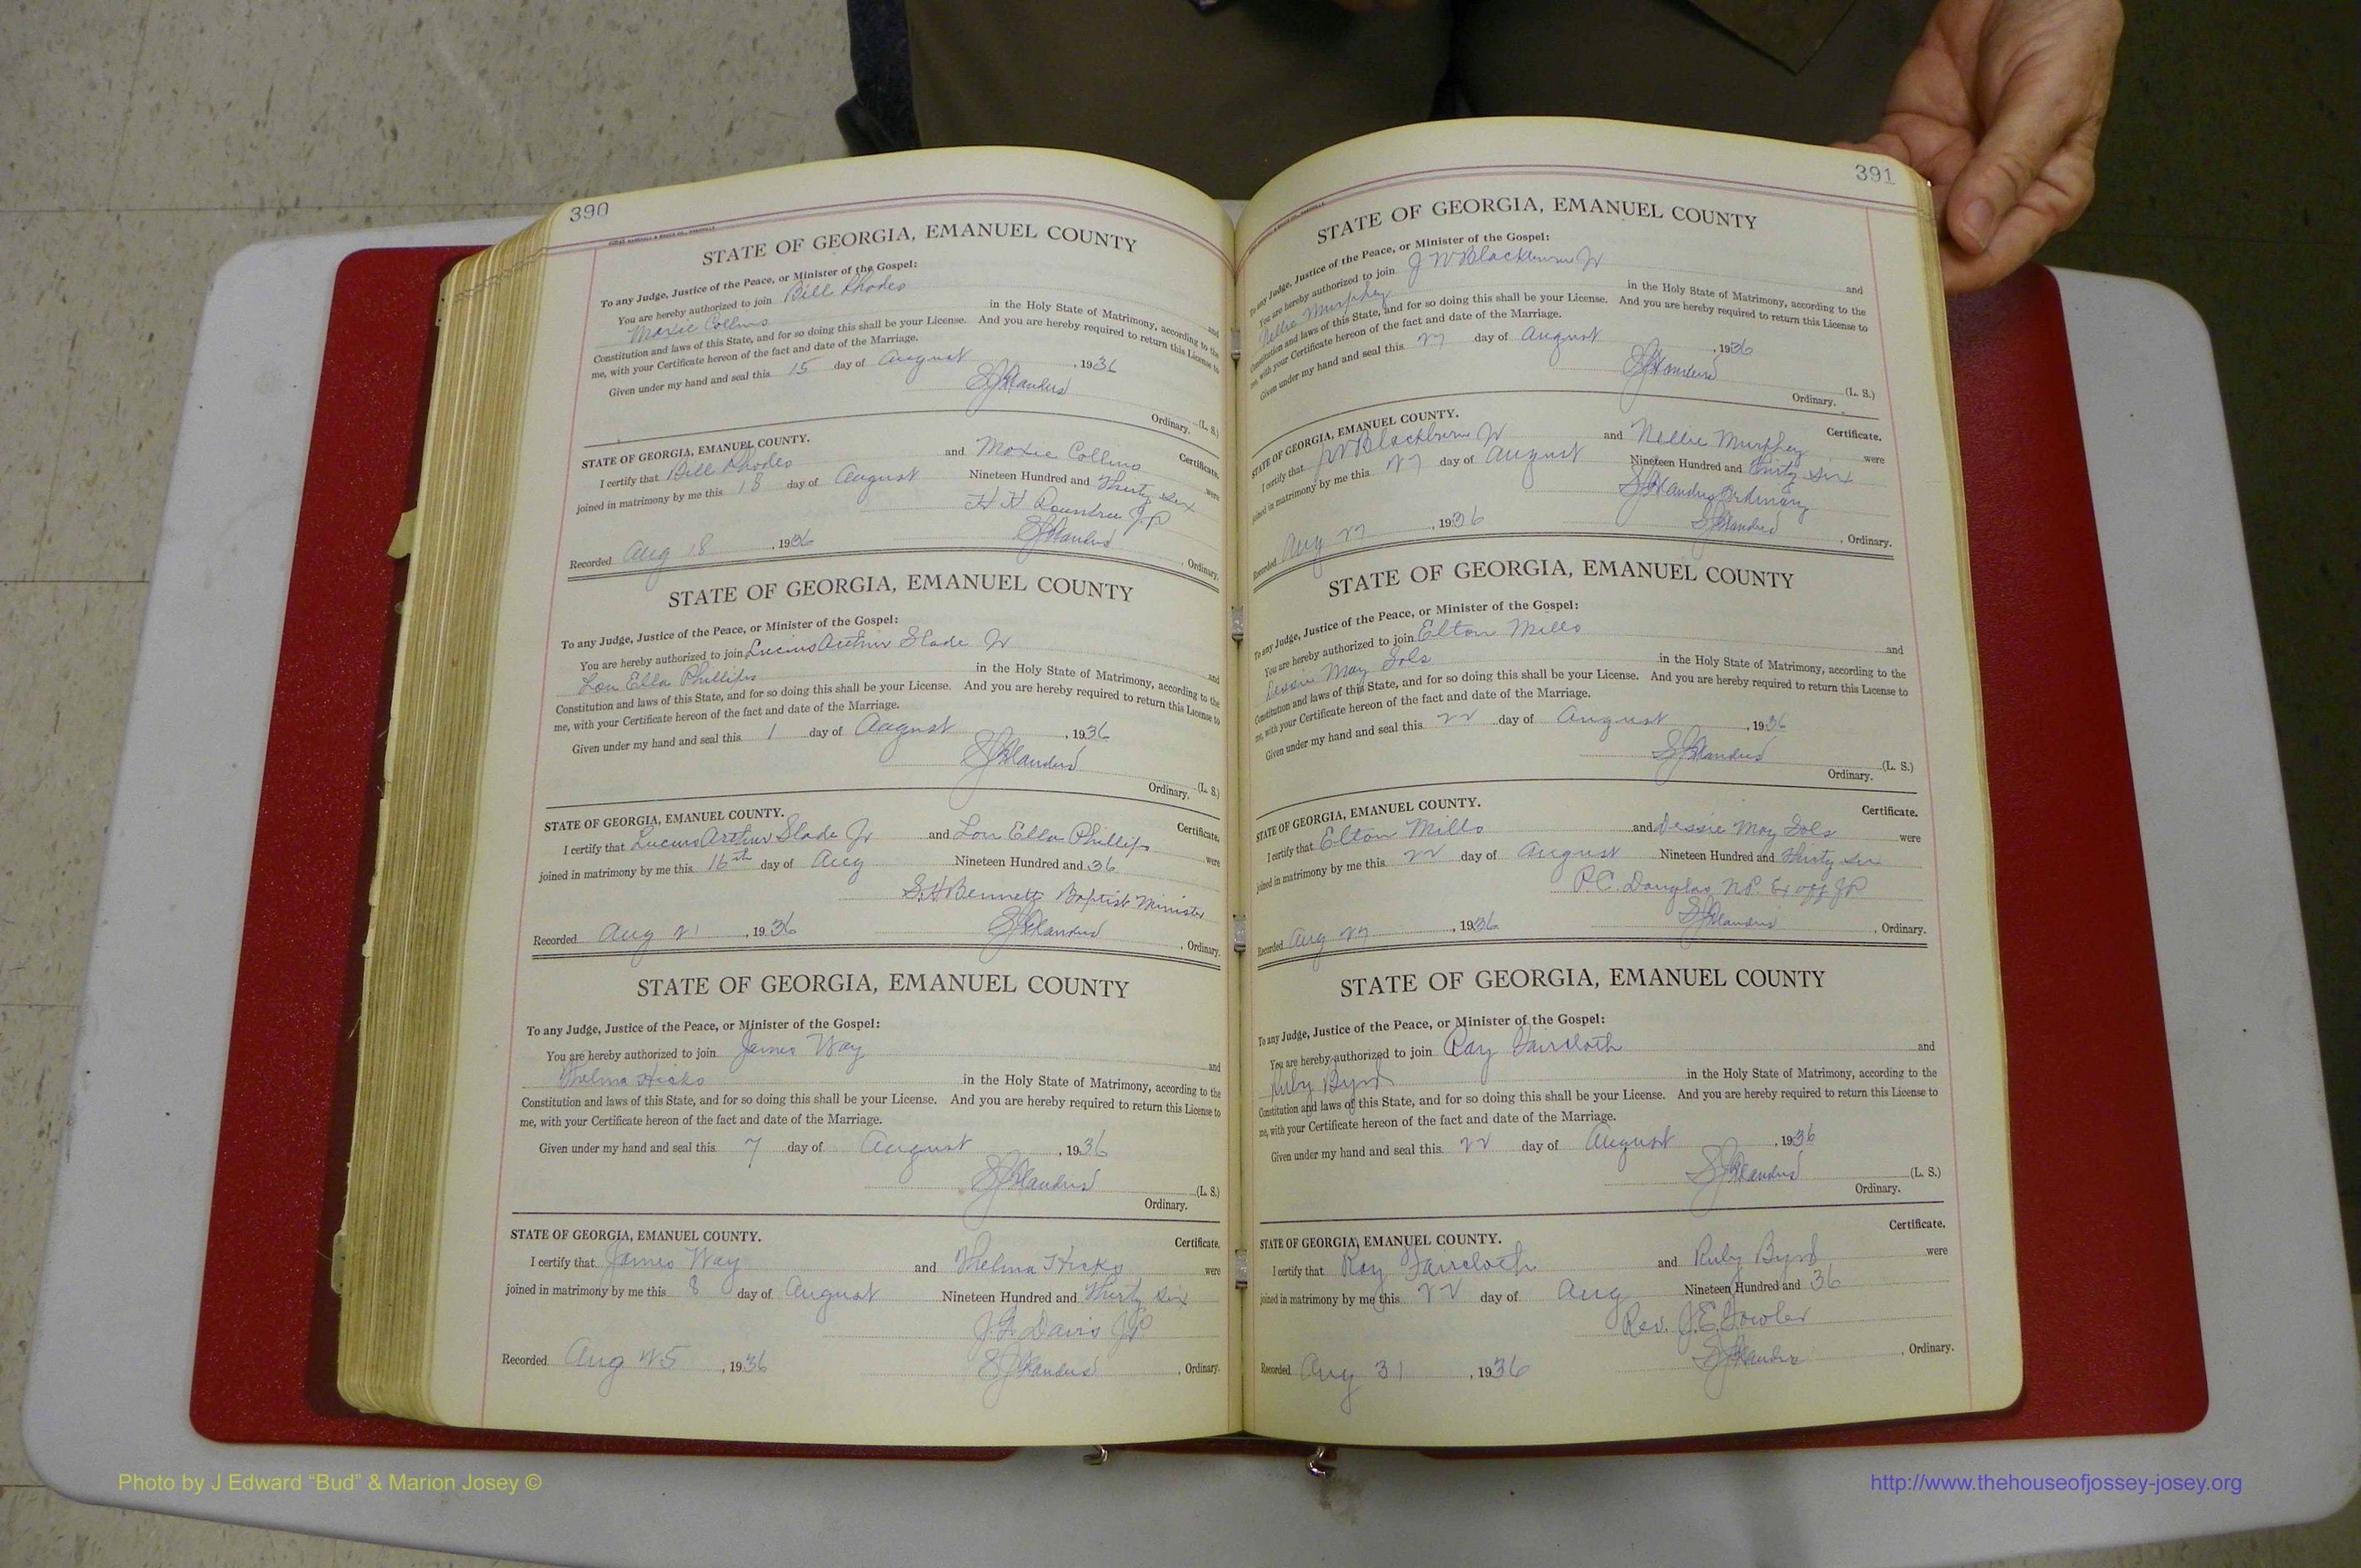 390
STATE OF GEORGIA, EMANUEL COUNTY
To any Judge, Justice of the Peace, or Minister of the Gospel:
You are hereby authorized to join Bill Rhodes and
Moxie Collins in the Holy State of Matrimony, according to the
Constitution and laws of this State, and for so doing this shall be your License. And you are hereby required to return this License to
me, with your Certificate hereon of the fact and date of the Marriage.
Given under my hand and seal this 15 day of August, 1936
(L. S.)
Ordinary.
STATE OF GEORGIA, EMANUEL COUNTY. Certificate.
I certify that Bill Rhodes and Moxie Collins were
joined in matrimony by me this 18 day of August Nineteen Hundred and Thirty Six
H H Rountree J P
Recorded Aug 18, 1936, Ordinary.
STATE OF GEORGIA, EMANUEL COUNTY
To any Judge, Justice of the Peace, or Minister of the Gospel:
You are hereby authorized to join Lucius Arthur Slade Jr and
Lou Ella Phillips in the Holy State of Matrimony, according to the
Constitution and laws of this State, and for so doing this shall be your License. And you are hereby required to return this License to
me, with your Certificate hereon of the fact and date of the Marriage.
Given under my hand and seal this 1 day of August, 1936
(L. S.)
Ordinary.
STATE OF GEORGIA, EMANUEL COUNTY. Certificate.
I certify that Lucius Arthur Slade Jr and Lou Ella Phillips were
joined in matrimony by me this 16th day of Aug Nineteen Hundred and 36
S. H. Bennett Baptist Minister
Recorded Aug 21, 1936, Ordinary.
STATE OF GEORGIA, EMANUEL COUNTY
To any Judge, Justice of the Peace, or Minister of the Gospel:
You are hereby authorized to join James Way and
Thelma Hicks in the Holy State of Matrimony, according to the
Constitution and laws of this State, and for so doing this shall be your License. And you are hereby required to return this License to
me, with your Certificate hereon of the fact and date of the Marriage.
Given under my hand and seal this 7 day of August, 1936
(L. S.)
Ordinary.
STATE OF GEORGIA, EMANUEL COUNTY. Certificate.
I certify that James Way and Thelma Hicks were
joined in matrimony by me this 8 day of August Nineteen Hundred and Thirty Six
Davis J.P.
Recorded Aug 25, 1936, Ordinary.
391
STATE OF GEORGIA, EMANUEL COUNTY
To any Judge, Justice of the Peace, or Minister of the Gospel:
You are hereby authorized to join J W Blackburn Jr and
Nellie Murphey in the Holy State of Matrimony, according to the
Constitution and laws of this State, and for so doing this shall be your License. And you are hereby required to return this License to
me, with your Certificate hereon of the fact and date of the Marriage.
Given under my hand and seal this 27 day of August, 1936
(L. S.)
Ordinary.
STATE OF GEORGIA, EMANUEL COUNTY. Certificate.
I certify that J W Blackburn Jr and Nellie Murphey were
joined in matrimony by me this 27 day of August Nineteen Hundred and Thirty Six
Ordinary
Recorded Aug 27, 1936, Ordinary.
STATE OF GEORGIA, EMANUEL COUNTY
To any Judge, Justice of the Peace, or Minister of the Gospel:
You are hereby authorized to join Elton Mills and
Dessie May in the Holy State of Matrimony, according to the
Constitution and laws of this State, and for so doing this shall be your License. And you are hereby required to return this License to
me, with your Certificate hereon of the fact and date of the Marriage.
Given under my hand and seal this 22 day of August, 1936
(L. S.)
Ordinary.
STATE OF GEORGIA, EMANUEL COUNTY. Certificate.
I certify that Elton Mills and Dessie May were
joined in matrimony by me this 22 day of August Nineteen Hundred and Thirty Six
P.C. Douglas N.P. Ex off JP
Recorded Aug 27, 1936, Ordinary.
STATE OF GEORGIA, EMANUEL COUNTY
To any Judge, Justice of the Peace, or Minister of the Gospel:
You are hereby authorized to join Ray Faircloth and
Ruby Byrd in the Holy State of Matrimony, according to the
Constitution and laws of this State, and for so doing this shall be your License. And you are hereby required to return this License to
me, with your Certificate hereon of the fact and date of the Marriage.
Given under my hand and seal this 22 day of August, 1936
(L. S.)
Ordinary.
STATE OF GEORGIA, EMANUEL COUNTY. Certificate.
I certify that Ray Faircloth and Ruby Byrd were
joined in matrimony by me this 22 day of Aug Nineteen Hundred and 36
Rev. J. E. Fowler
Recorded Aug 31, 1936, Ordinary.
Photo by J Edward “Bud” & Marion Josey ©
http://www.thehouseofjossey-josey.org